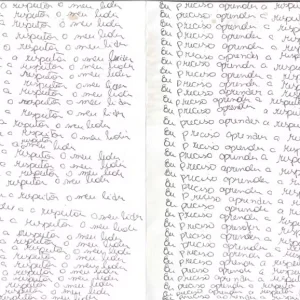 a respeitar o meu lider
respeitar o meu lider
a respeitar o meu lider
respeitar o meu lider
a respeitar o meu lider
a respeitar o meu lider
a respeitar o meu lider
a respeitar o meu lider
a respeitar o meu lider
respeitar o meu lider
a respeitar o meu lider
a respeitar o meu lider
a respeitar o meu lider
a respeitar o meu lider
a respeitar o meu lider
a respeitar o meu lider
a respeitar o meu lider
respeitar o meu lider
a respeitar o meu lider
a respeitar o meu lider
a respeitar o meu lider
Eu preciso aprender a respe
Eu preciso aprender a resp
Eu preciso aprender a respe
Eu preciso aprender a resp
Eu preciso aprender a respe
Eu preciso aprender a resp
Eu preciso aprender a respe
Eu preciso aprender a resp
Eu preciso aprender a resp
Eu preciso aprender a r
Eu preciso aprender a re
Eu preciso aprender a re
Eu preciso aprender a resp
Eu preciso aprender a resp
Eu preciso aprender a resp
Eu preciso aprender a resp
Eu preciso aprender a resp
Eu preciso aprender a resp
Eu preciso aprender a resp
Eu preciso aprender a resp
Eu preciso aprender a resp